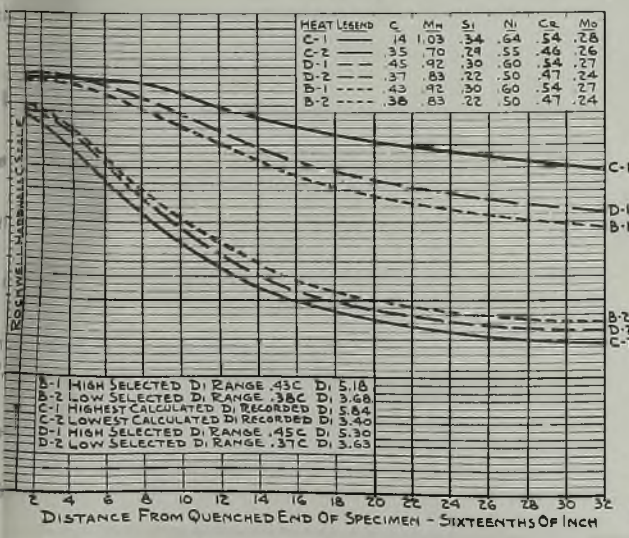 HEAT LEGEND C MN SI NI CR MO
C-1 14 1.03 .34 .64 .54 .28
C-2 35 .70 .29 .55 .46 .26
D-1 .45 .92 .30 .60 .54 .27
D-2 .37 .83 .22 .50 .47 .24
B-1 .43 .92 .30 .60 .54 .27
B-2 .38 .83 .22 .50 .47 .24
ROCKWELL HARDNESS C SCALE
C-1
D-1
B-1
B-2
D-2
C-2
B-1 HIGH SELECTED DI RANGE .43C DI 5.18
B-2 LOW SELECTED DI RANGE .38C DI 3.68
C-1 HIGHEST CALCULATED DI RECORDED DI 5.84
C-2 LOWEST CALCULATED DI RECORDED DI 3.40
D-1 HIGH SELECTED DI RANGE .45C DI 5.30
D-2 LOW SELECTED DI RANGE .37C DI 3.63
2 4 6 8 10 12 14 16 18 20 22 24 26 28 30 32
DISTANCE FROM QUENCHED END OF SPECIMEN - SIXTEENTHS OF INCH